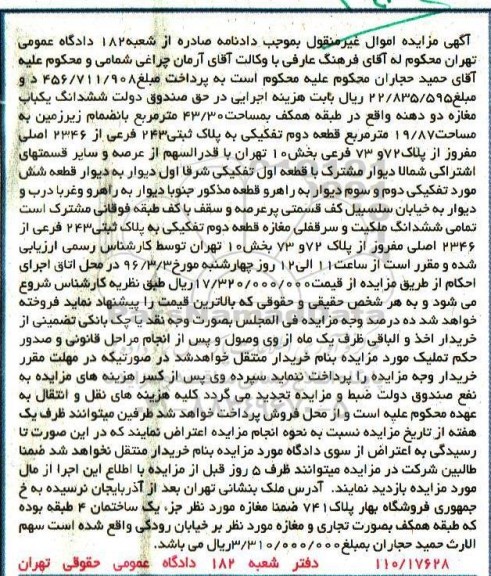 آگهی مزایده اموال غیرمنقول بموجب دادنامه صادره از شعبه۱۸۲ دادگاه عمومی
تهران محکوم له آقای فرهنگ عارفی با وکالت آقای آرمان چراغی شمامی و محکوم علیه
آقای حمید حجاران محکوم علیه محکوم است به پرداخت مبلغ۴۵۶/۷۱۱/۹۰۸ د و
مبلغ۲۲/۸۳۵/۵۹۵ ریال بابت هزینه اجرایی در حق صندوق دولت ششدانگ یکباب
مغازه دو دهنه واقع در طبقه همکف بمساحت۴۳/۳۰ مترمربع بانضمام زیرزمین به
مساحت۱۹/۸۷ مترمربع قطعه دوم تفکیکی به پلاک ثبتی۲۴۳ فرعی از ۲۳۴۶ اصلی
مفروز از پلاک۷۲و ۷۳ فرعی بخش۱۰ تهران با قدرالسهم از عرصه و سایر قسمتهای
اشتراکی شمالا دیوار مشترک با قطعه اول تفکیکی شرقا اول دیوار به دیوار قطعه شش
مورد تفکیکی دوم و سوم دیوار به راهرو قطعه مذکور جنوبا دیوار به راهرو وغربا درب و
دیوار به خیابان سلسبیل کف قسمتی پرعرصه و سقف با کف طبقه فوقانی مشترک است
تمامی ششدانگ ملکیت و سرقفلی مغازه قطعه دوم تفکیکی به پلاک ثبتی۲۴۳ فرعی از
۲۳۴۶ اصلی مفروز از پلاک ۷۲و ۷۳ بخش۱۰ تهران توسط کارشناس رسمی ارزیابی
شده و مقرر است از ساعت۱۱ الی۱۲ روز چهارشنبه مورخ۹۶/۳/۳ در محل اتاق اجرای
احکام از طریق مزایده از قیمت۱۷/۳۲۰/۰۰۰/۰۱۰ریال طبق نظریه کارشناس شروع
می شود و به هر شخص حقیقی و حقوقی که بالاترین قیمت را پیشنهاد نماید فروخته
خواهد شد ده درصد وجه مزایده فی المجلس بصورت وجه نقد یا چک بانکی تضمینی از
خریدار اخذ و الباقی ظرف یک ماه از وی وصول و پس از انجام مراحل قانونی و صدور
حکم تملیک مورد مزایده بنام خریدار منتقل خواهدشد در صورتیکه در مهلت مقرر
خریدار وجه مزایده را پرداخت ننماید سپرده وی پس از کسر هزینه های مزایده به
نفع صندوق دولت ضبط و مزایده تجدید می گردد کلیه هزینه های نقل و انتقال به
عهده محکوم علیه است و از محل فروش پرداخت خواهد شد طرفین میتوانند ظرف یک
هفته از تاریخ مزایده نسبت به نحوه انجام مزایده اعتراض نمایند که در این صورت تا
رسیدگی به اعتراض از سوی دادگاه مورد مزایده بنام خریدار منتقل نخواهد شد ضمنا
طالبین شرکت در مزایده میتوانند ظرف ۵ روز قبل از مزایده با اطلاع این اجرا از مال
مورد مزایده بازدید نمایند. آدرس ملک بنشانی تهران بعد از آذربایجان نرسیده به خ
جمهوری فروشگاه بهار پلاک۷۴۱ ضمنا مغازه مورد نظر جزء یک ساختمان ۴ طبقه بوده
که طبقه همکف بصورت تجاری و مغازه مورد نظر بر خیابان رودکی واقع شده است سهم
الارث حمید حجاران بمبلغ۳/۳۱۰/۰۰۰/۰۰۰ریال می باشد.
۱۱۰/۱۷۶۲۸ دفتر شعبه ۱۸۲ دادگاه عمومی حقوقی تهران